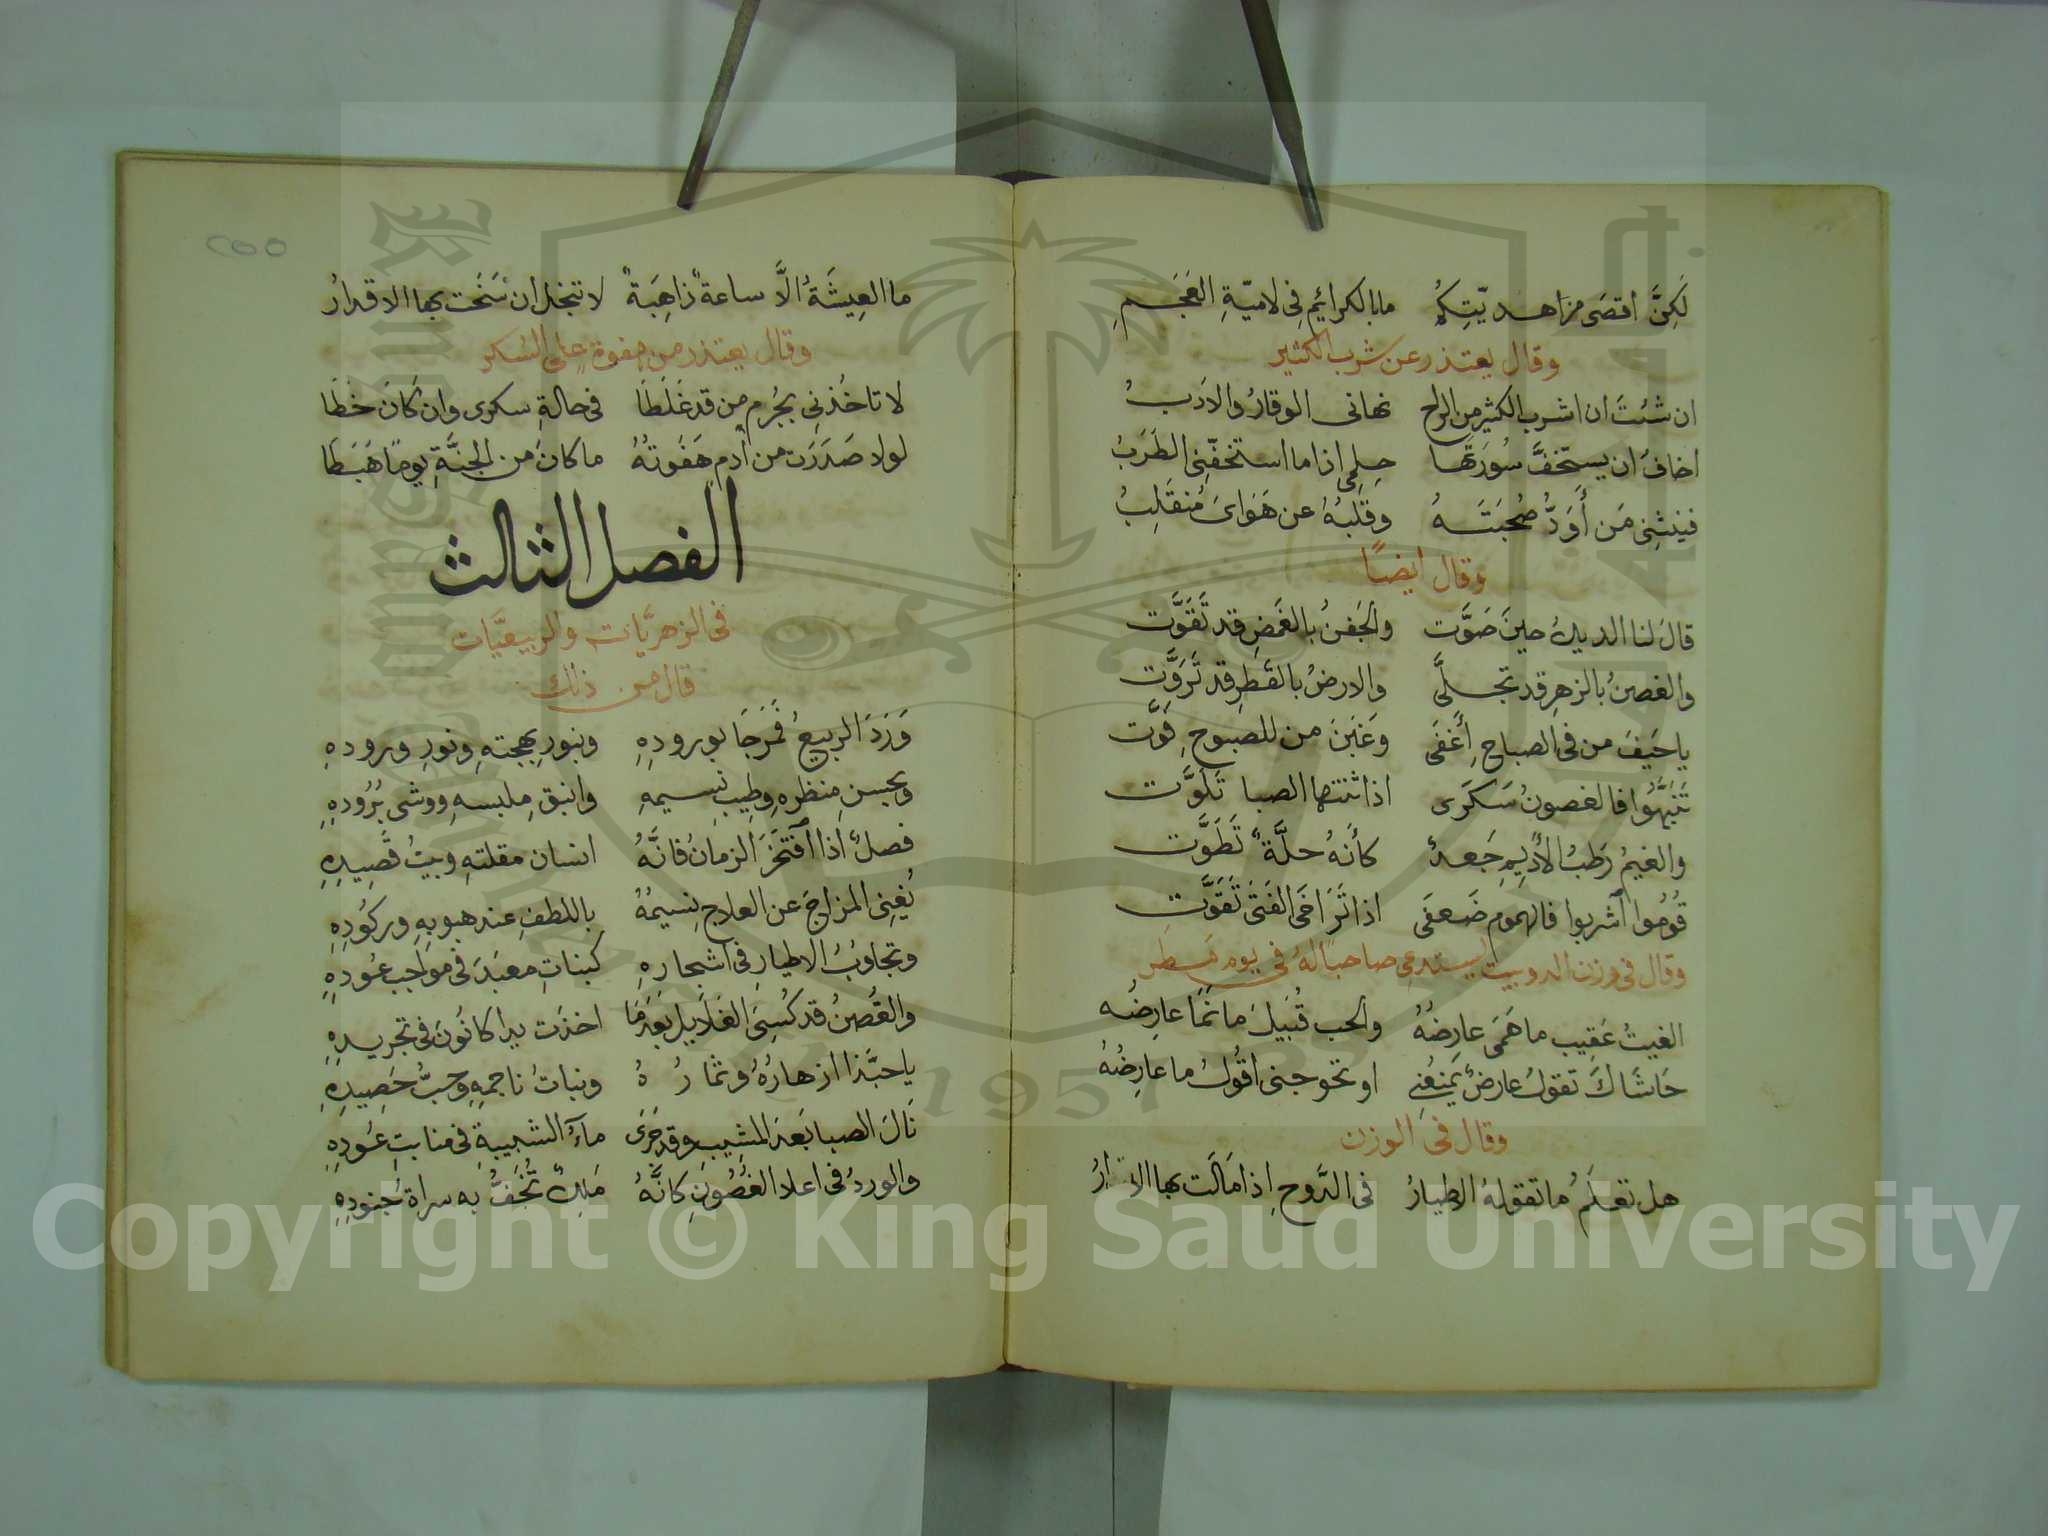 لَكِنَّ اقصَى مزاهد يّتِكُم مابالكرايمِ فى لاميّةِ العَجَمِ
وقال يعتذر عن شرب الكثير
ان شئتَ ان اشرب الكثير من الراح نهانى الوقارُ والادَبُ
اخافَ ان يستخفَّ سُورَتَها حِلمِى اذا ما استخفّنِى الطَرَبُ
فينثنِى مَن أَوَدُّ صُحبَتَهُ وقلبُهُ عن هَوَاىَ مُنقَلِبُ
وقال ايضًا
قالَ لنا الديكُ حينَ صَوَّت والجَفنُ بالغَمضِ قد تَقَوَّت
والغصنُ بالزهرِ قد تجلَّى والارضُ بالقَطرِ قد تَرَوَّت
ياحَيفَ من فى الصباحِ أَغفَى وَغَبَنَ من للصبوحِ فَوَّت
تَنَبَّهُوا فالغصونُ سَكرَى اذا ثنتها الصبا تَلَوَّت
والغيمُ رَطبُ الأَدِيمِ جَعدٌ كأنهُ حلَّةٌ تَطَوَّت
قُومُوا أشربوا فالهموم ضَعفَى اذا تَرَاخَى الفَتَى تَقَوَّت
وقال فى وزن الدوبيت يستدعى صاحبًا لهُ فى يوم مَطِر
الغيثُ عَقِيب ما هَمَى عارِضُهُ والحب قُبَيلَ ما نَمَا عارِضُه
حَاشَاكَ تقولُ عارضٌ يَمنَعُنِى او تحوجنى اقُولُ ما عارِضُهُ
وقال فى الوزن
هل تعلَمُ ما تقولهُ الاطيارُ فى الدَّوحِ اذا مَالَت بها
ما العِيشَةُ الَّا ساعةٌ ذاهِبَةٌ لا تبخل ان سَنَحَت بها الاقدارُ
وقال يعتذر من هفوة على السكر
لا تاخُذنِى بجُرم من قد غَلَطَا فى حالةِ سكرى وان كَانَ خَطَا
لولا صَدَرَت من آدمٍ هَفَوتُهُ ما كانَ من الجنَّةِ يومًا هَبَطَا
الفصل الثالث
فى الزهريَّات والربيعيَّات
قال من ذلك
وَرَدَ الربيعُ فمَرحَبًا بورودِهِ وبنورِ بهجتهِ ونورِ ورودهِ
وبحسنِ منظرهِ وطيبِ نسيمهِ وانيقِ ملبسهِ ووشى بُرُودِهِ
فصلٌ اذا أفتخَرَ الزمانُ فانَّهُ انسان مقلتهِ وبيتُ قَصِيدِهِ
يُغنِى المزاجَ عن العلاجِ نسيمُهُ باللطفِ عند هبوبهِ وركُودِهِ
وتجاوُبُ الاطيارِ فى اشجارهِ كبناتِ معبَدَ فى مواجب عُودِهِ
والغُصنُ قد كُسِىَ الغَلَايِل بَعدَمَا اخذَت يدا كانُونَ فى تجريدِهِ
ياحبَّذا ازهارُهُ وثمارُهُ ونباتُ ناجمهِ وحبُّ حَصِيدِهِ
نَالَ الصبا بَعدَ المشيبِ وقد جَرَى ماءُ الشبيبةِ فى منابتِ عُودِهِ
والوردُ فى اعلا الغُصُونِ كانَّهُ مَلِكٌ تُحَفُّ به سراة جُنودِهِ
٢٥٥
1957
Copyright © King Saud University